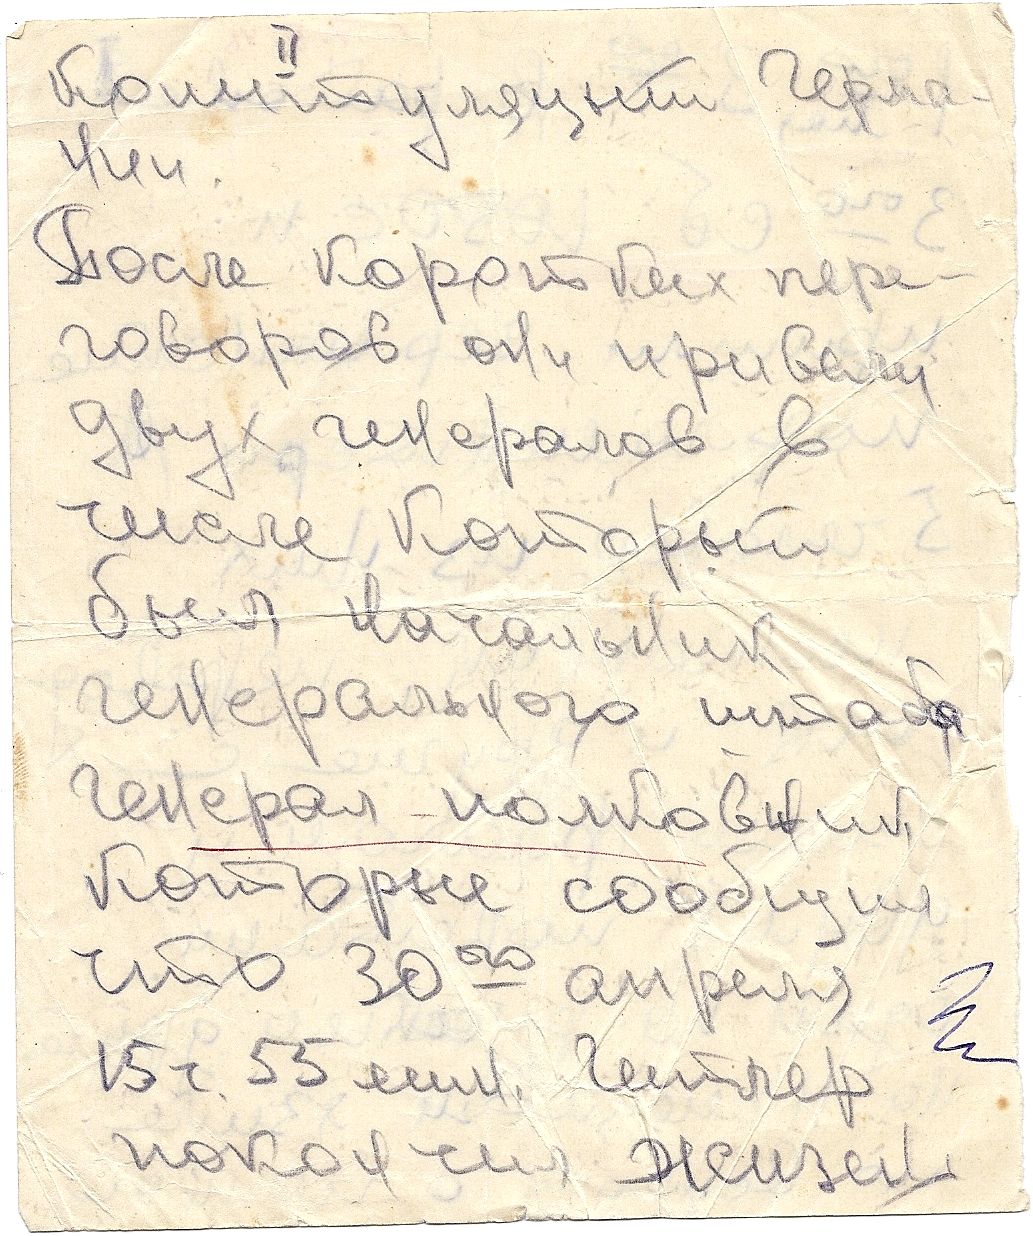 II
Капитуляции Герма-
нии.
После коротких пере-
говоров они привели
двух генералов в
числе который
был начальник
генерального штаба
генерал-полковник
которые сообщил
что 30ого апреля
15 ч. 55 мин. Гитлер
покончил жизень